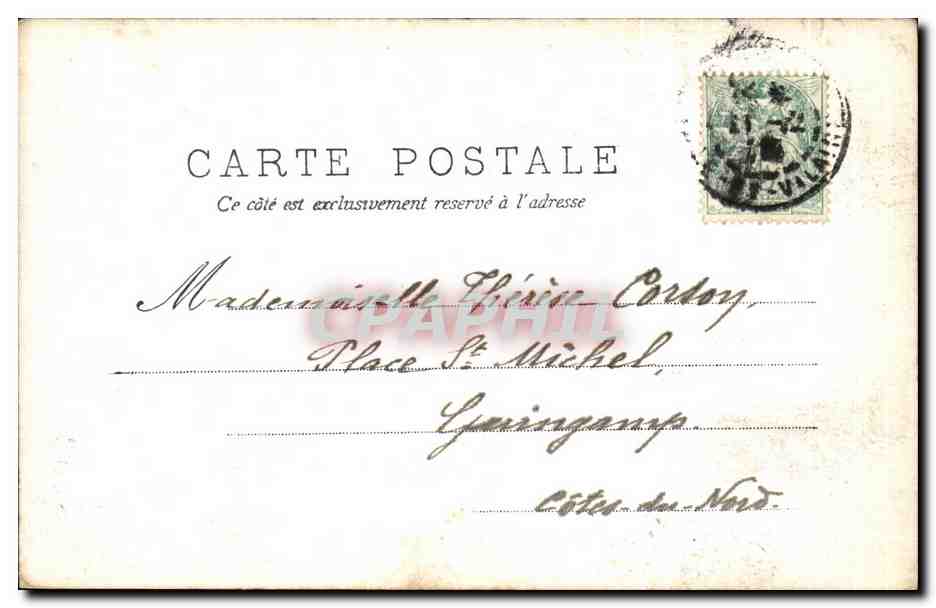 CARTE POSTALE
Ce côté est exclusivement reservé à l'adresse
Mademoiselle Thérèse
CPAPHIL
Place St Michel,
Guingamp.
Côtes-du-Nord.